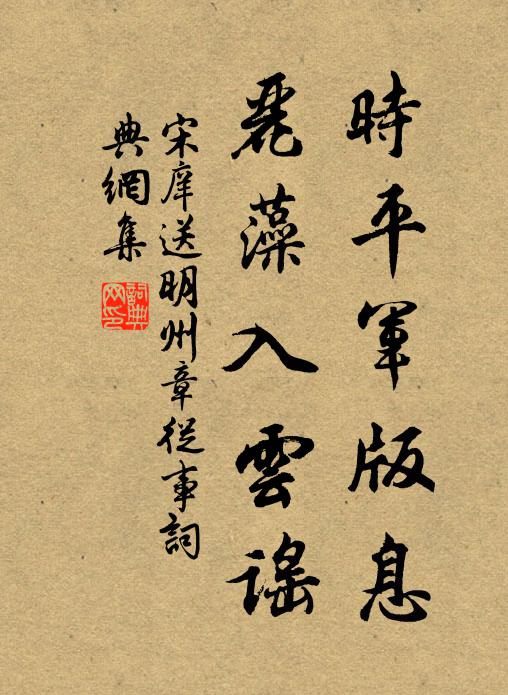 時平軍版息
麗藻入雲謠
宋庠送明州章從事詞
典網集
詞典
网印